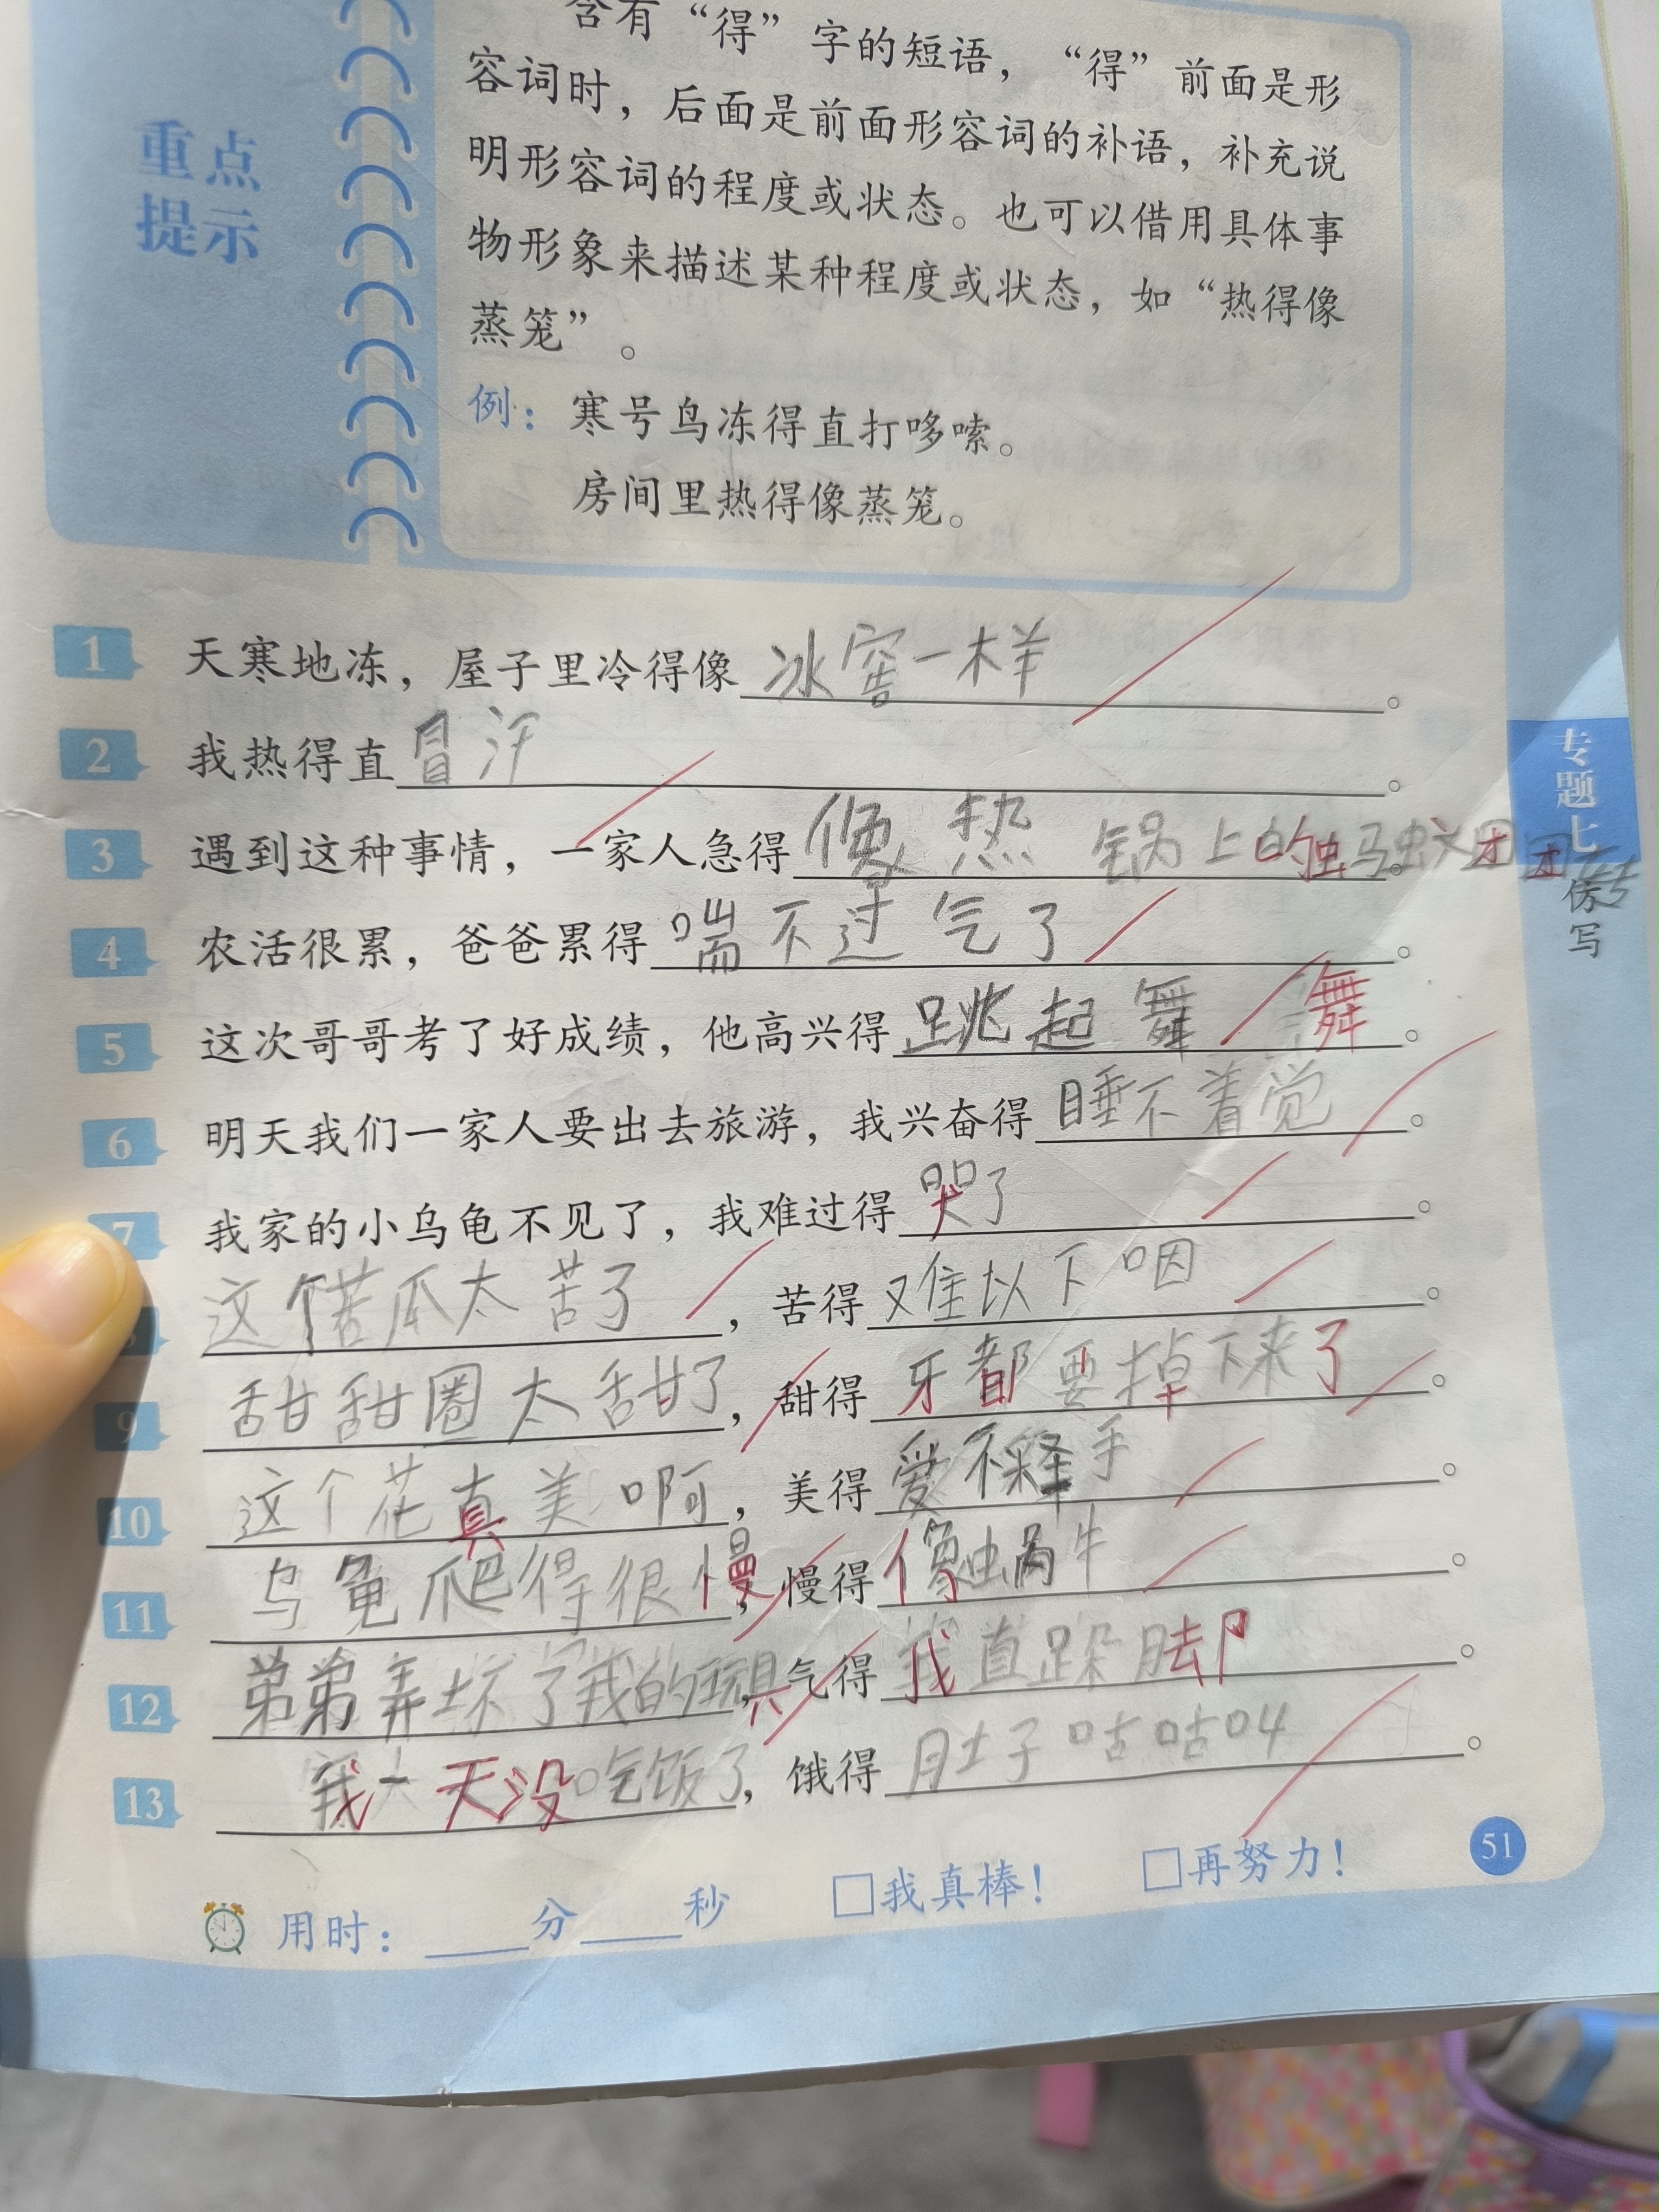 重点
提示
含有“得”字的短语，“得”前面是形
容词时，后面是前面形容词的补语，补充说
明形容词的程度或状态。也可以借用具体事
物形象来描述某种程度或状态，如“热得像
蒸笼”。
例：寒号鸟冻得直打哆嗦。
房间里热得像蒸笼。
1 天寒地冻，屋子里冷得像冰窖一样。
2 我热得直冒汗。
3 遇到这种事情，一家人急得像热锅上的蚂蚁团团转。
4 农活很累，爸爸累得喘不过气了。
5 这次哥哥考了好成绩，他高兴得跳起舞 舞。
6 明天我们一家人要出去旅游，我兴奋得睡不着觉。
7 我家的小乌龟不见了，我难过得哭了。
8 这个苦瓜太苦了，苦得难以下咽。
9 甜甜圈太甜了，甜得牙都要掉下来了。
10 这个花真美啊，美得爱不释手。
真
11 乌龟爬得很慢，慢得像蜗牛。
12 弟弟弄坏了我的玩具，气得我直跺脚。
13 我一天没吃饭了，饿得肚子咕咕叫。
专题七
仿写
用时：____分____秒 □我真棒！ □再努力！
51